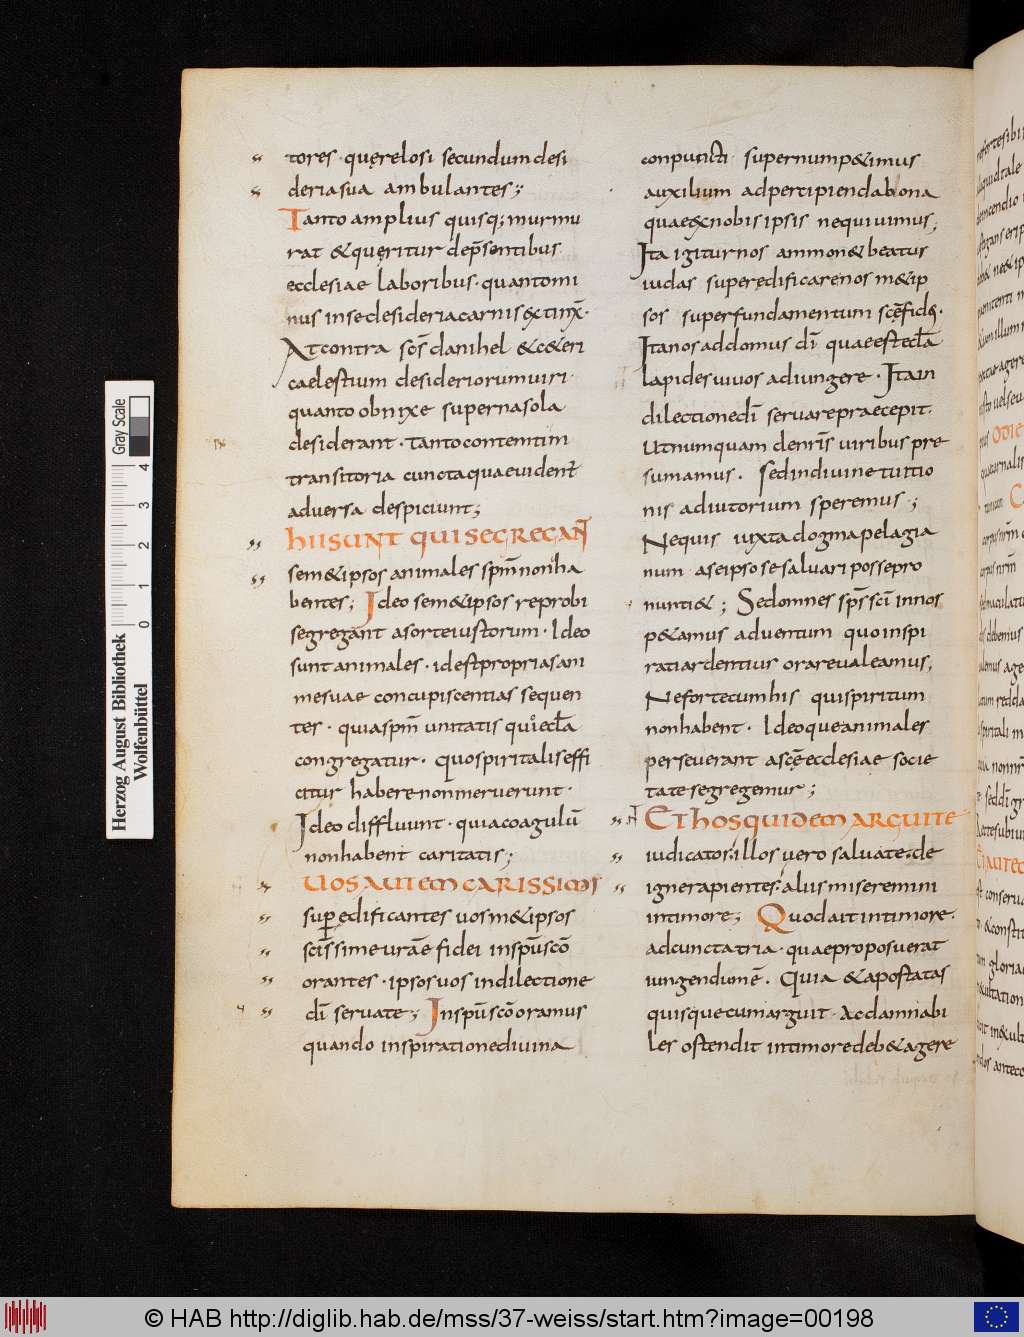 tores · quęrelosi secundum desi
deria sua ambulantes;
Tanto amplius quisq; murmu
rat & quęritur de p̄sentibus
ecclesiae laboribus · quanto mi
nus in se desideria carnis extinx̄ ·
At contra sc̄s danihel & c&eri
caelestium desideriorum uiri ·
quanto obnixe superna sola
desiderant · tanto contemtim
transitoria cuncta quae uident̄
aduersa despiciunt;
hII SUNT QUI SEGREGAN̄
sem&ipsos animales sp̄m non ha
bentes; Ideo sem&ipsos reprobi
segregant a sorte iustorum · Ideo
sunt animales · id est proprias ani
mę suae concupiscentias sequen
tes · quia sp̄m unitatis quo ecl̄a
congregatur · quo spiritalis effi
citur habere non meruerunt ·
Ideo diffluunt · quia coagulū
non habent caritatis;
UOS AUTEM CARISSIMI
superędificantes uosm&ipsos
scīssime urāe fidei in sp̄u sc̄o
orantes · ipsos uos in dilectione
dī seruate; In sp̄u sc̄o oramus
quando inspiratione diuina
conpuncti · supernum p&imus
auxilium ad percipienda bona
quae ex nobis ipsis nequiuimus;
Ita igitur nos ammon& beatus
iudas superędificare nosm&ip
sos super fundamentum sc̄e fidei ·
Ita nos ad domus dī quae est ecl̄a
lapides uiuos adiungere · Ita in
dilectione dī seruare praecepit ·
Ut numquam de nr̄is uiribus pre
sumamus · Sed in diuinę tuitio
nis adiutorium speremus ;
Ne quis iuxta dogma pelagia
num a se ipso se saluari posse pro
nunti& ; Sed omnes sp̄s sc̄i in nos
p&amus aduentum quo inspi
rati ardentius orare ualeamus;
Ne forte cum his qui spiritum
non habent · Ideoque animales
perseuerant a sc̄ę ecclesiae socie
tate segregemur ;
ET hOS QUIDEM ARGUITE
iudicatos · illos uero saluate · de
igne rapientes · aliis miseremini
in timore; Quod ait in timore ·
ad cuncta tria · quae proposuerat
iungendum ē · Quia & apostatas
quisque cum arguit · Ac damnabi
les ostendit in timore deb& agere
Gray Scale
4
3
2
1
0
Herzog August Bibliothek
Wolfenbüttel
© HAB http://diglib.hab.de/mss/37-weiss/start.htm?image=00198